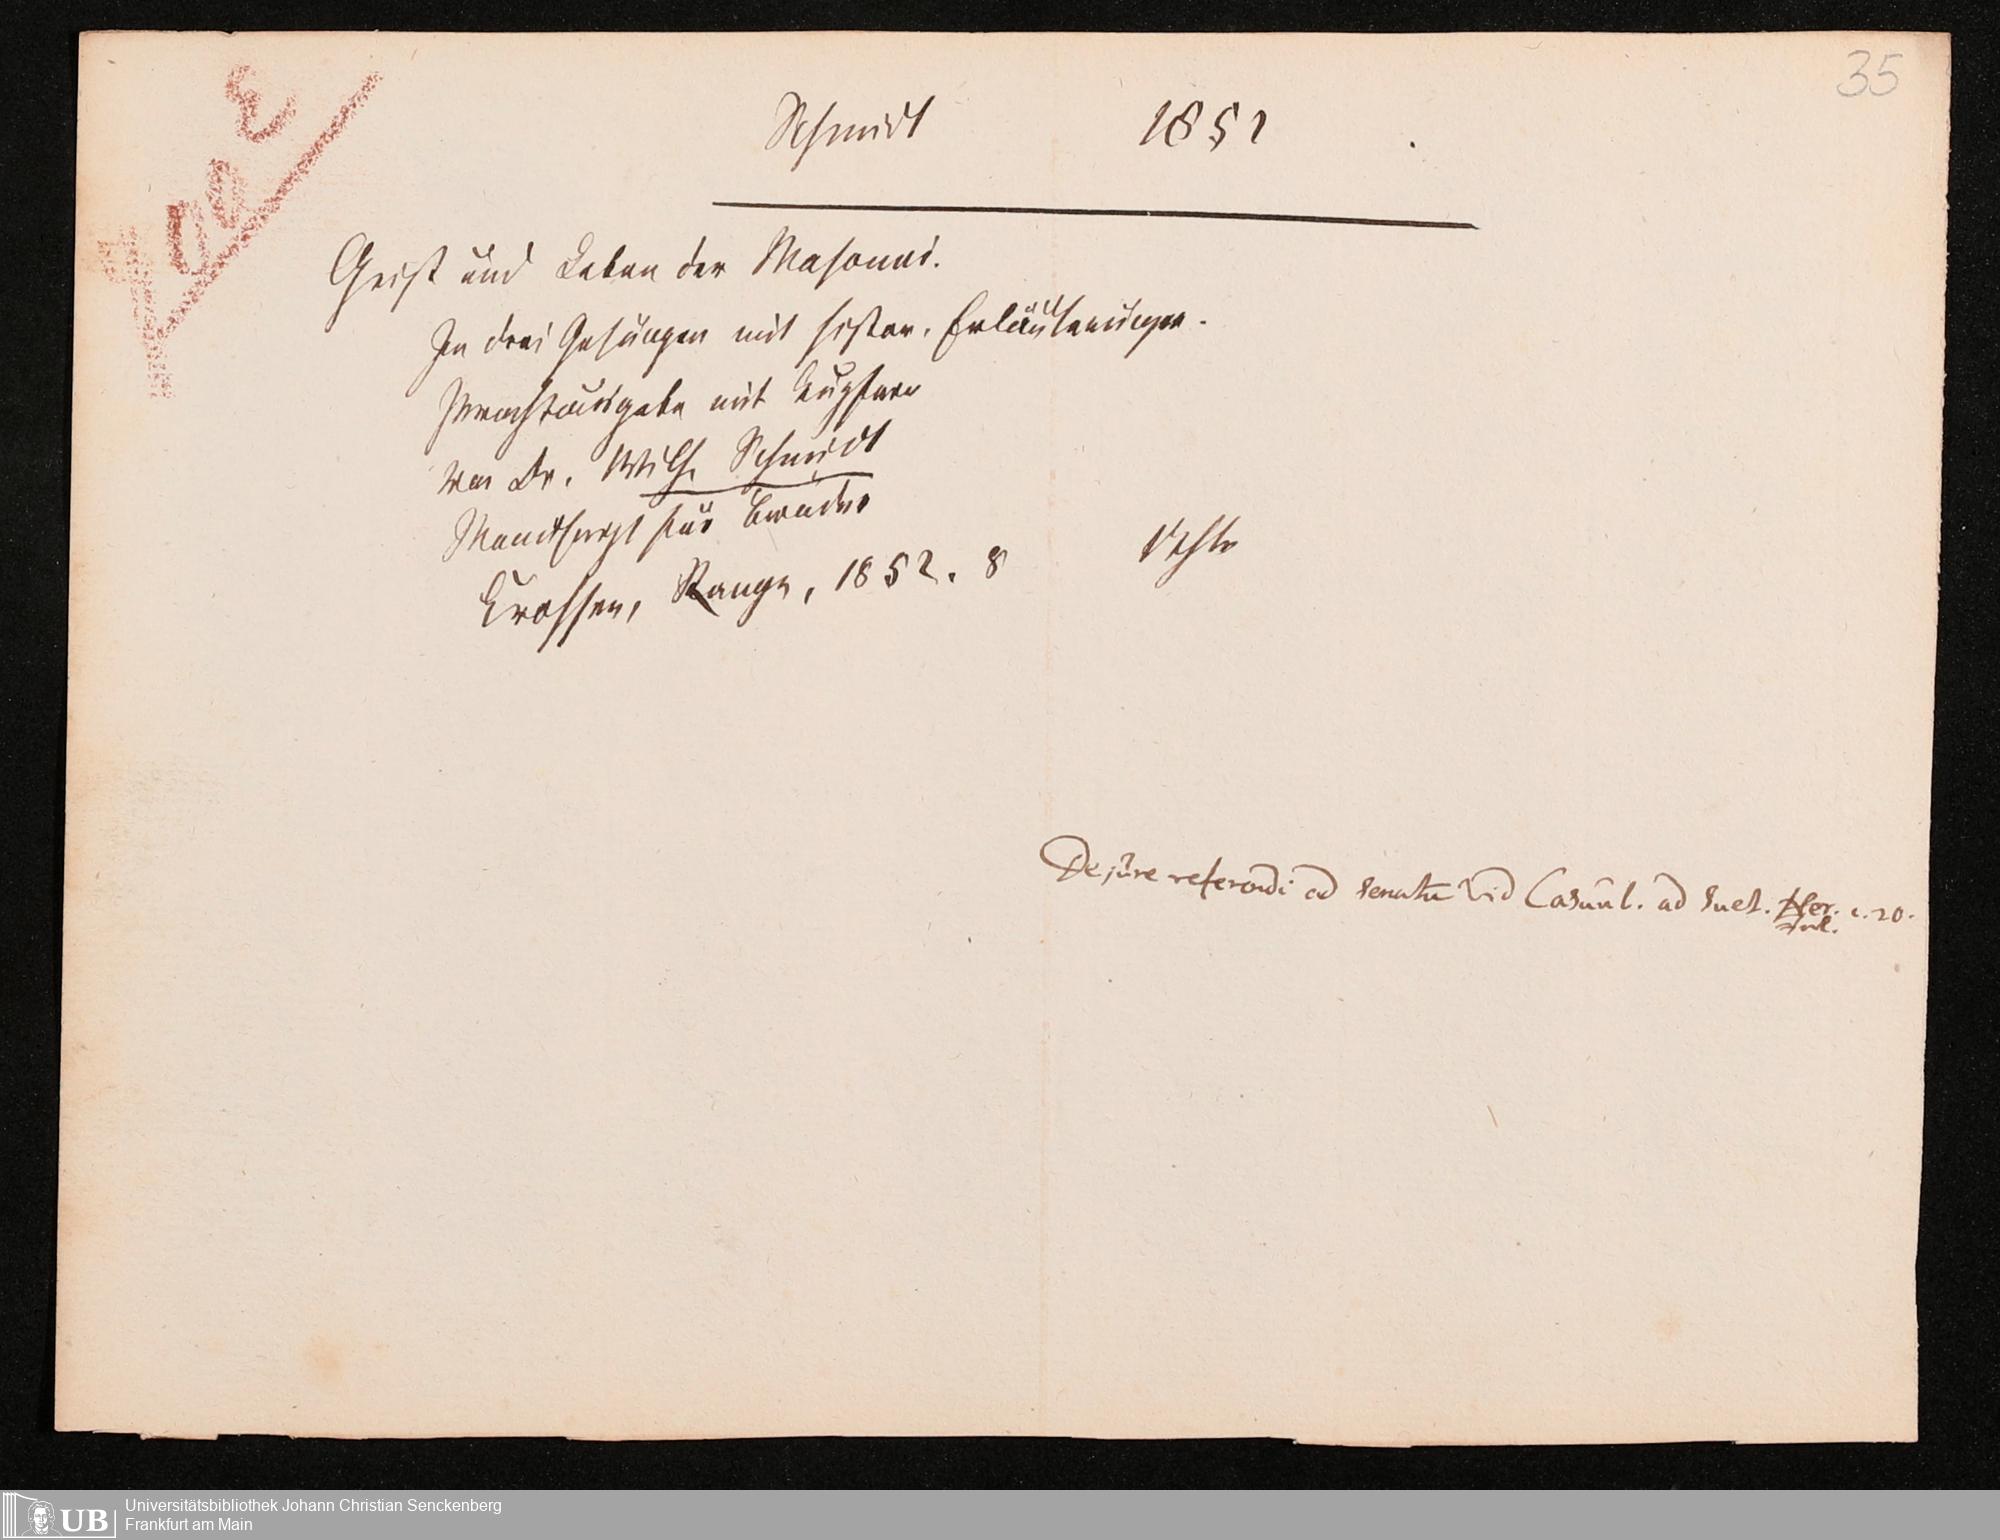 35
Schmidt 1852.
Geist und Leben der Masonei.
In drei Gesängen mit histor. Erläuterungen.
Prachtausgabe mit Kupfern
von Dr. Wilh. Schmidt
Manuskript für Brüder
Krossen, Range, 1852. 8
De jure referendi ad senatu vid Casaub. ad Suet. c. 20.
Jul.
UB
Universitätsbibliothek Johann Christian Senckenberg
Frankfurt am Main